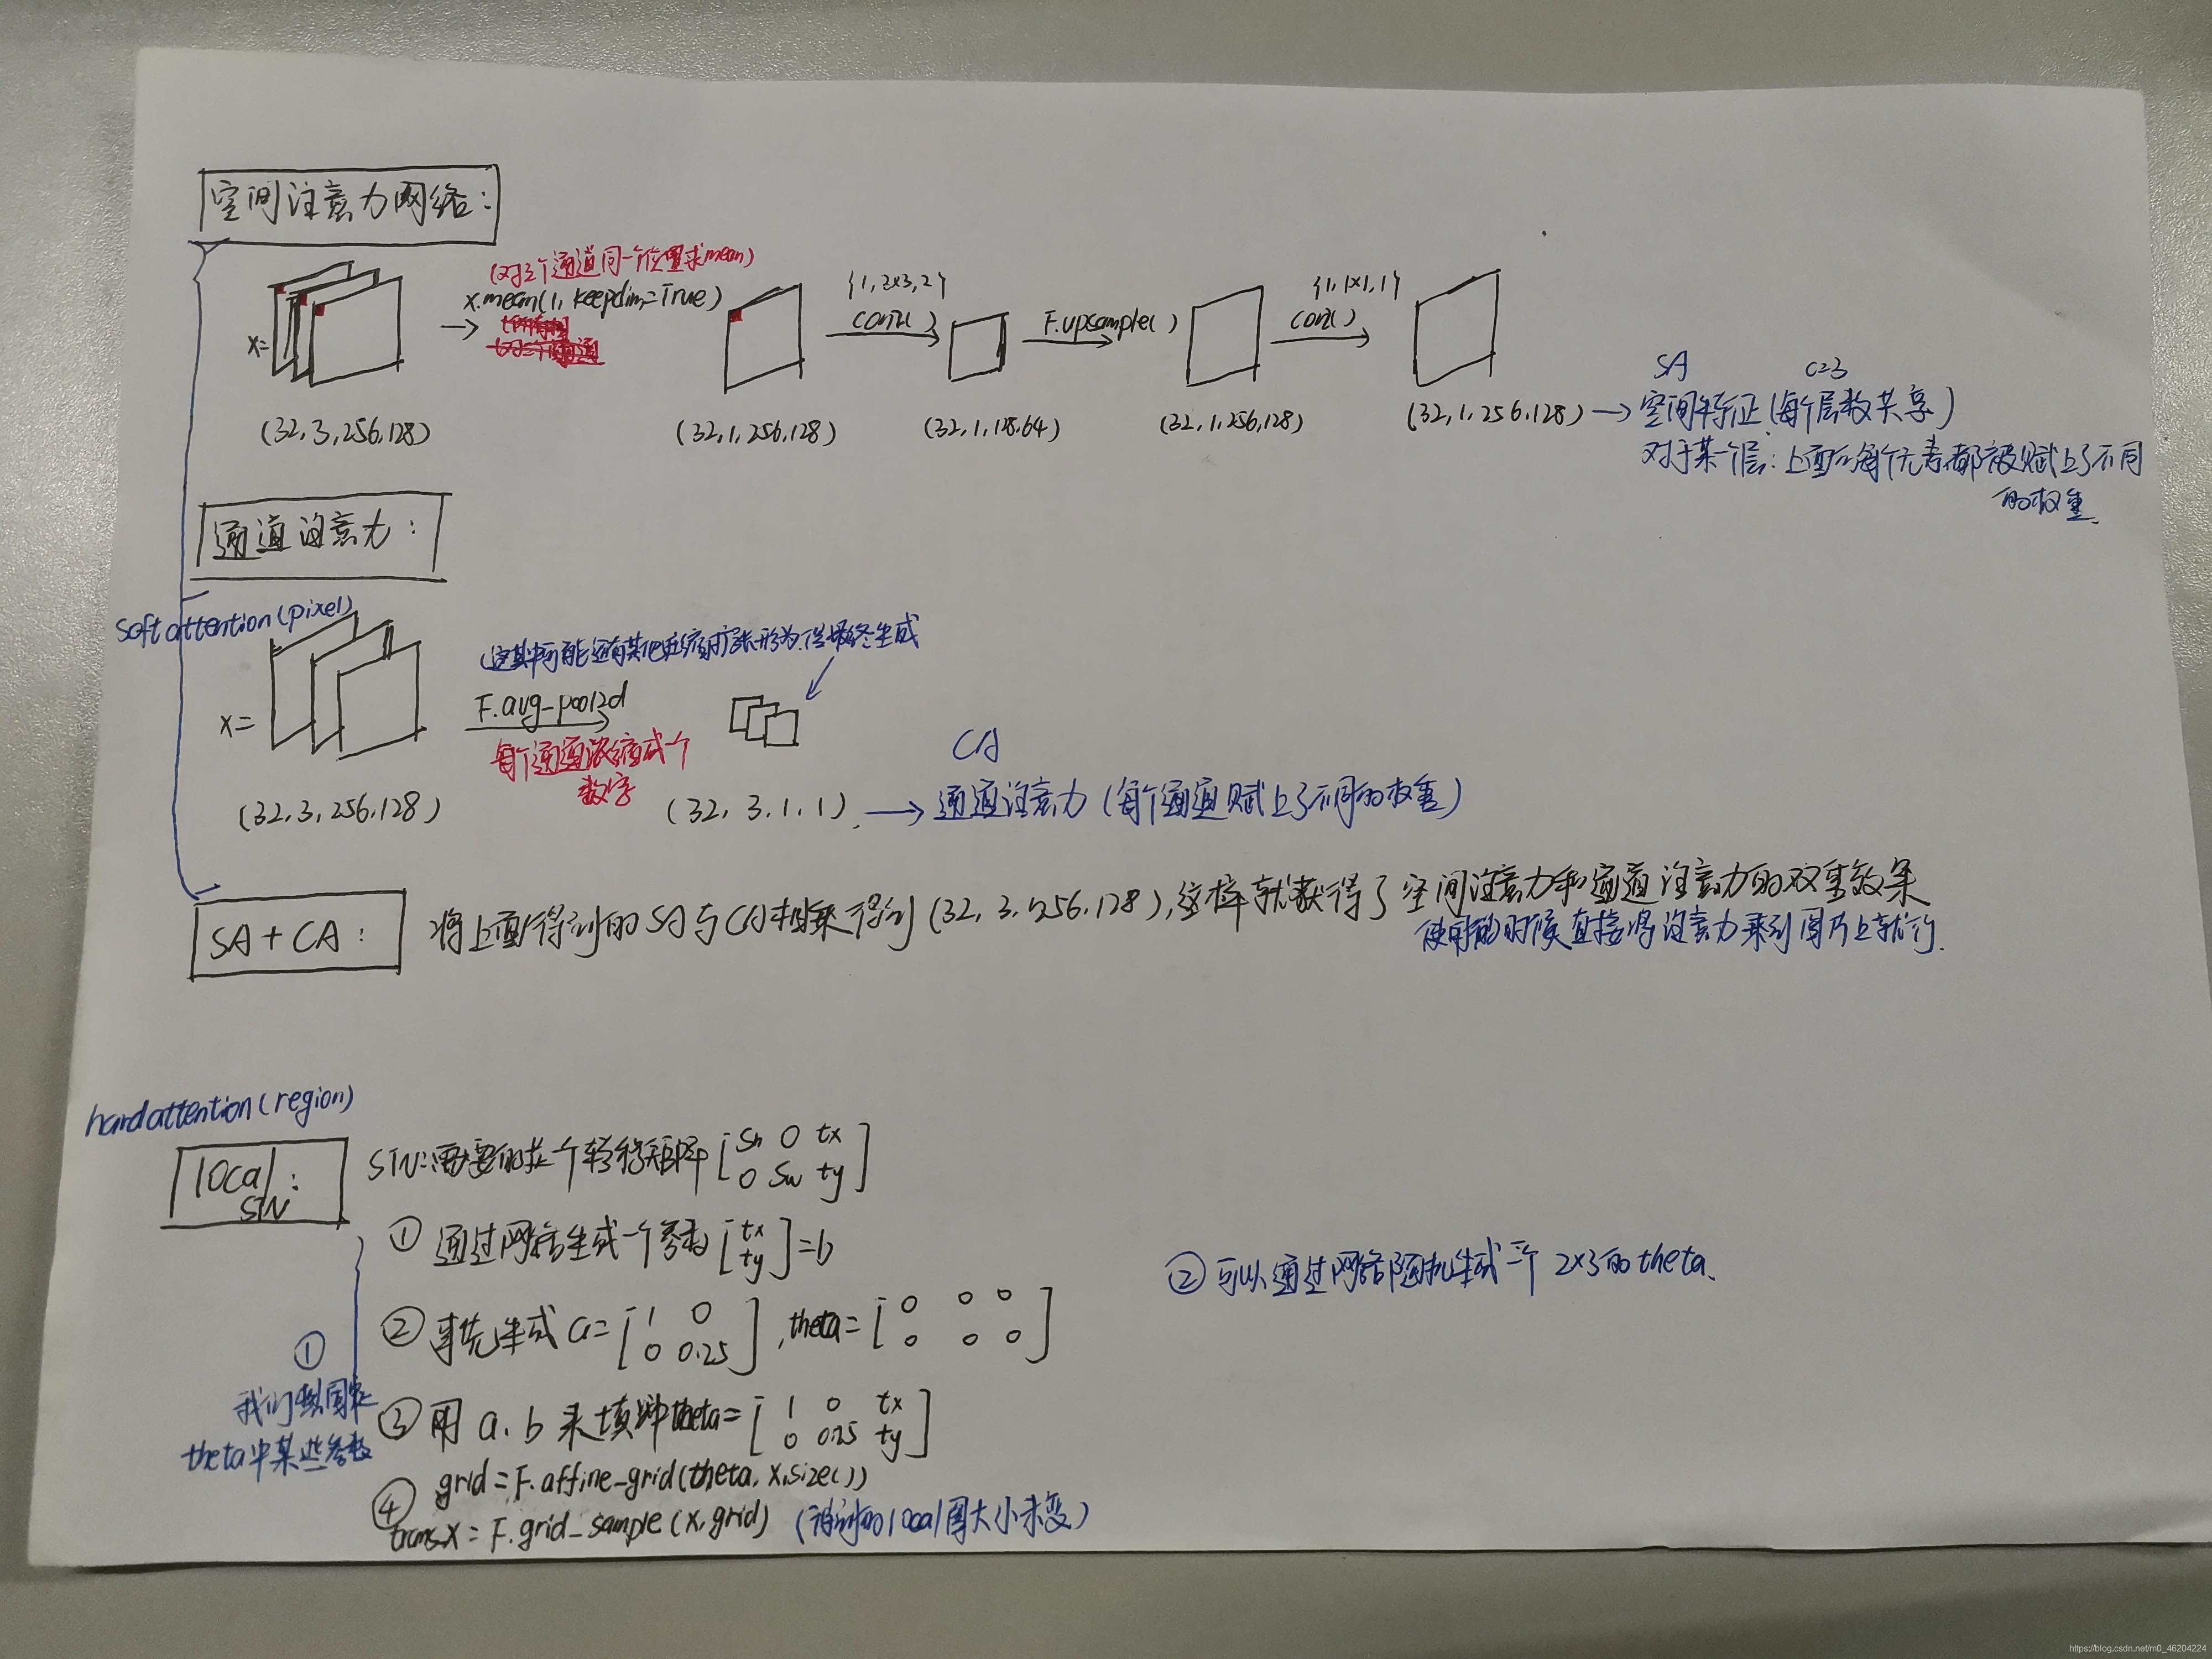 空间注意力网络:
(对三个通道同一个位置求mean)
x.mean(1, keepdim=True)
x=
{1, 2x3, 2}
conv( )
F.upsample( )
{1, 1x1, 1}
conv( )
(32, 3, 256, 128)
(32, 1, 256, 128)
(32, 1, 128, 64)
(32, 1, 256, 128)
(32, 1, 256, 128)
SA c=3
空间特征(每个层数共享)
对于某个层: 上面的每个元素都被赋上了不同
的权重.
通道注意力:
soft attention (pixel)
x=
F.avg_pool2d
每个通道浓缩成一个
数字
(32, 3, 256, 128)
(32, 3, 1, 1)
CA
通道注意力(每个通道赋上了不同的权重)
SA + CA:
将上面得到的SA与CA相乘得到(32, 3, 256, 128), 这样就获得了空间注意力和通道注意力的双重效果
使用的时候直接将注意力乘到图片上就行.
hard attention (region)
local:
STN
STN:需要的是一个转移矩阵 [sh 0 tx
0 sw ty]
① 通过网络生成一个参数 [tx
ty] = b
② 事先生成 a= [1 0
0 0.25], theta= [0 0 0
0 0 0]
③ 用 a, b 来填冲theta= [1 0 tx
0 0.25 ty]
④ grid = F.affine_grid(theta, x.size())
trans_x = F.grid_sample(x, grid) (得到的local图大小未变)
①
theta中某些参数
② 可以通过网络随机生成一个 2x3 的 theta.
https://blog.csdn.net/m0_46204224